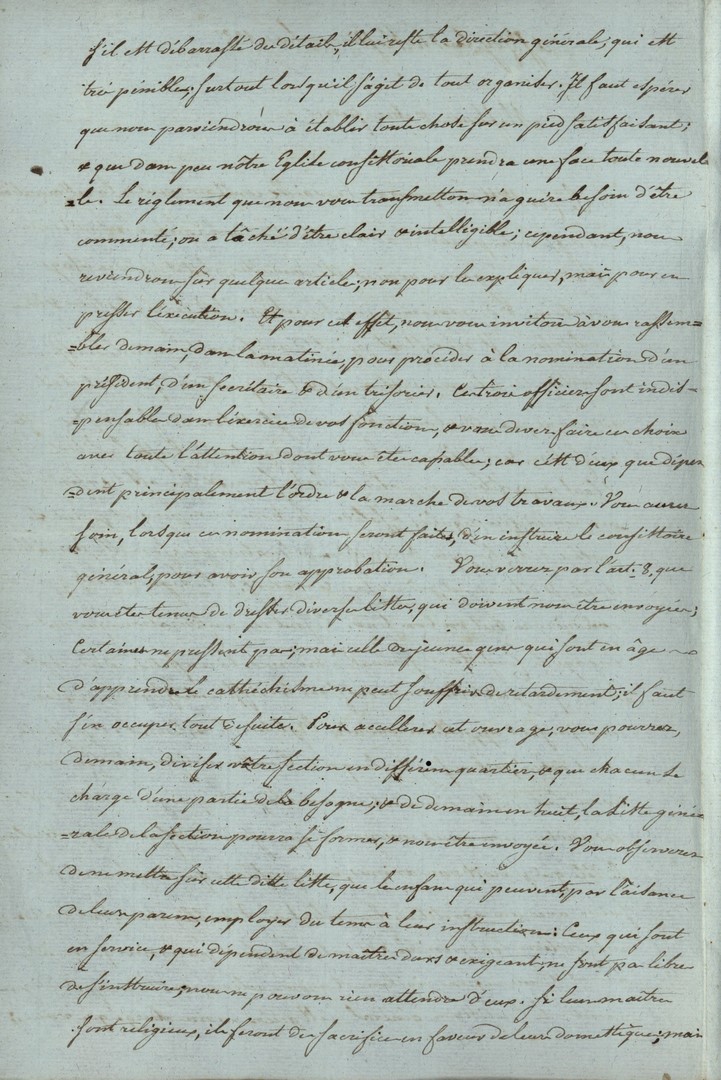 s'il est débarrassé du détail, il lui reste la direction générale, qui est
très pénible, surtout lorsqu'il s'agit de tout organiser. Il faut espérer
que nous parviendrons à établir toute chose sur un pied satisfaisant;
& que dans peu nôtre Eglise consistoriale prendra une face toute nouvel
=le. Le réglement que nous vous transmettons n'a guère besoin d'être
commenté; on a tâché d'être clair & intelligible; cependant, nous
reviendrons sur quelques articles, non pour les expliquer, mais pour en
presser l'exécution. Et pour cet effet, nous vous invitons à vous rassem=
=bler demain, dans la matinée, pour procéder à la nomination d'un
président, d'un secrétaire & d'un trésorier. Ces trois officiers sont indis=
=pensables dans l'exercice de vos fonctions, & vous devez faire ce choix
avec toute l'attention dont vous êtes capables; car c'est d'eux que dépen
=dent principalement l'ordre & la marche de vos travaux. Vous aurez
soin, lorsque ces nominations seront faites, d'en instruire le consistoire
général, pour avoir son approbation. Vous verrez par l'art. 8. que
vous êtes tenus de dresser diverses listes, qui doivent nous être envoyées;
Certaines ne pressent pas; mais celle des jeunes gens qui sont en âge
d'apprendre le cathéchisme ne peut souffrir de retardement; il faut
s'en occuper tout de suite. Pour accellerer cet ouvrage, vous pourrez,
demain, diviser vôtre section en différens quartiers, & que chacun se
charge d'une partie de la besogne; & de demain en huit, la liste géné=
=rale de la section pourra se former, & nous être envoyée. Vous observerez
de ne mettre sur cette ditte liste, que les enfans qui peuvent, par l'aisance
de leurs parens, employer du tems à leur instruction: Ceux qui sont
en service, & qui dépendent de maîtres durs & exigeant, ne sont pas libres
de s'instruire; nous ne pouvons rien attendre d'eux. Si leurs maîtres
sont religieux, ils feront des sacrifices en faveur de leurs domestiques; mais